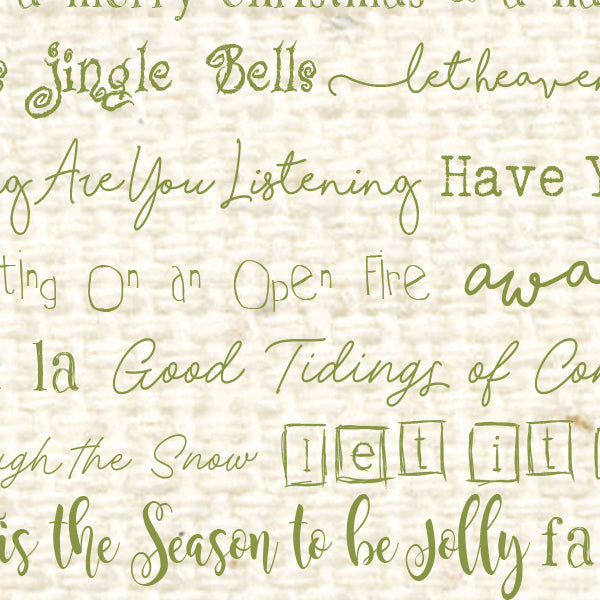 a merry Christmas & a ha
s jingle Bells let heaven
ng Are You Listening Have Y
ting On an Open Fire awa
la Good Tidings of Com
ugh the Snow let it
is the Season to be Jolly fa